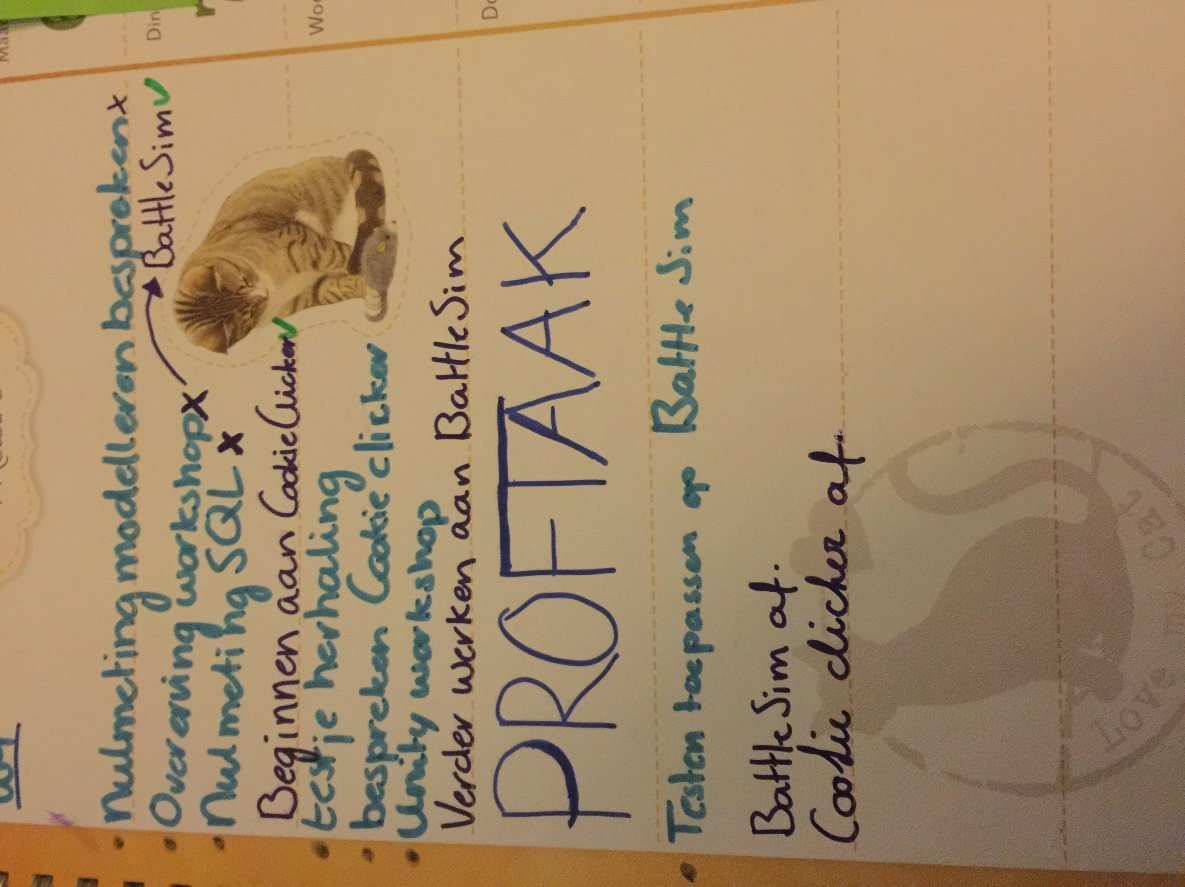 Maa
Din
Wo
Do
Nulmeting modelleren bespreken x
Overerving workshop x → BattleSim ✓
Nulmeting SQL x
Beginnen aan CookieClicker ✓
testje herhaling
bespreken Cookie clicker
Unity workshop
Verder werken aan BattleSim
PROFTAAK
Testen toepassen op BattleSim
BattleSim af.
Cookie clicker af.
Love my Cat